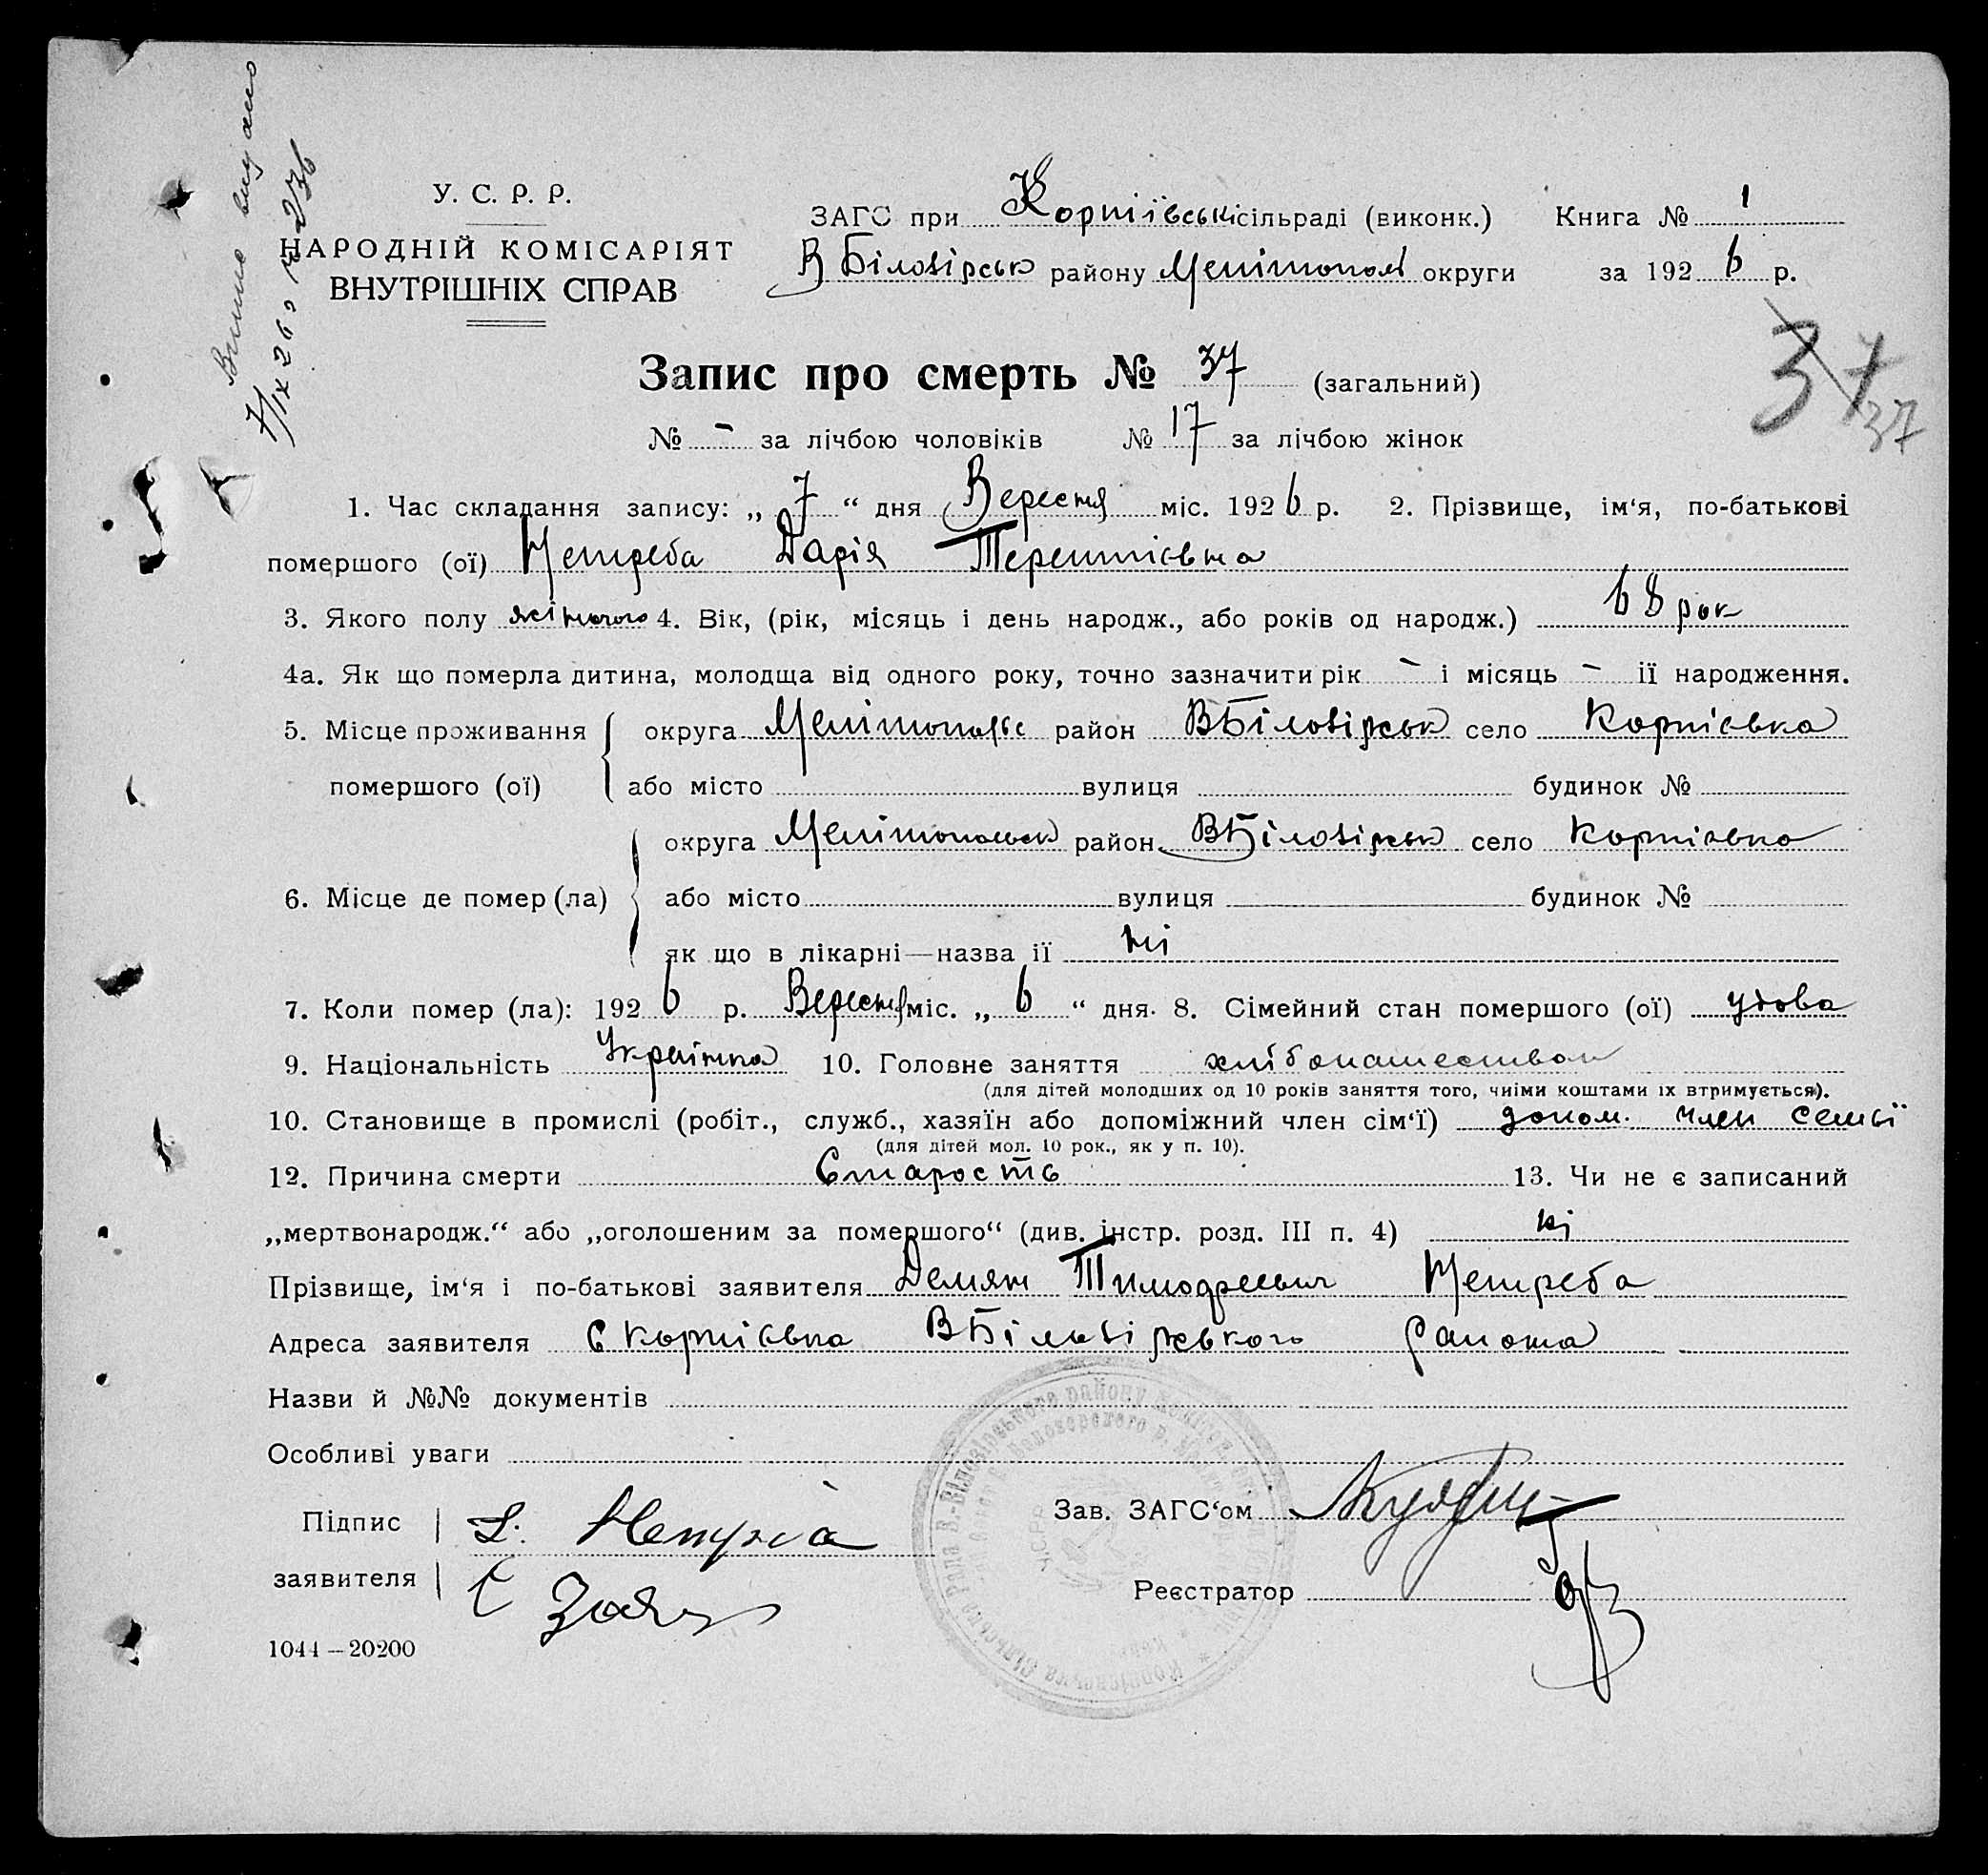 Виписъ видано
7/IX 26 г № 236
У. С. Р. Р.
НАРОДНІЙ КОМІСАРІЯТ
ВНУТРІШНІХ СПРАВ
ЗАГС при Корніївські сільраді (виконк.) Книга № 1
ВБілозірськ району Мелітопол округи за 1926 р.
Запис про смерть № 37 (загальний)
37
37
№ - за лічбою чоловіків № 17 за лічбою жінок
1. Час складання запису: „ 7 “ дня Вересня міс. 1926 р. 2. Прізвище, ім‘я, по-батькові
помершого (ої) Нетреба Дарія Терентієвна
3. Якого полу жіночого 4. Вік, (рік, місяць і день народж., або років од народж.) 68 рок
4а. Як що померла дитина, молодща від одного року, точно зазначити рік - і місяць - ії народження.
5. Місце проживання округа Мелітопольс район ВБілозірськ село Корнієвка
помершого (ої) або місто вулиця будинок №
округа Мелітопольск район ВБілозірськ село Корнієвка
6. Місце де помер (ла) або місто вулиця будинок №
як що в лікарні—назва ії ні
7. Коли помер (ла): 1926 р. Вересня міс. „ 6 “ дня. 8. Сімейний стан помершого (ої) удова
9. Національність Українка 10. Головне заняття хлібопашеством
(для дітей молодших од 10 років заняття того, чиїми коштами іх втримується).
10. Становище в промислі (робіт., служб., хазяїн або допоміжний член сім‘ї) допом. член семьї
(для дітей мол. 10 рок., як у п. 10).
12. Причина смерти Старость 13. Чи не є записаний
„мертвонародж.“ або „оголошеним за помершого“ (див. інстр. розд. III п. 4) ні
Прізвище, ім‘я і по-батькові заявителя Демян Тимофеевич Нетреба
Адреса заявителя С Корнієвка ВБілозірського района
Назви й №№ документів
Особливі уваги
Підпис Д. Нетреба Зав. ЗАГС‘ом
заявителя Реєстратор
1044—20200